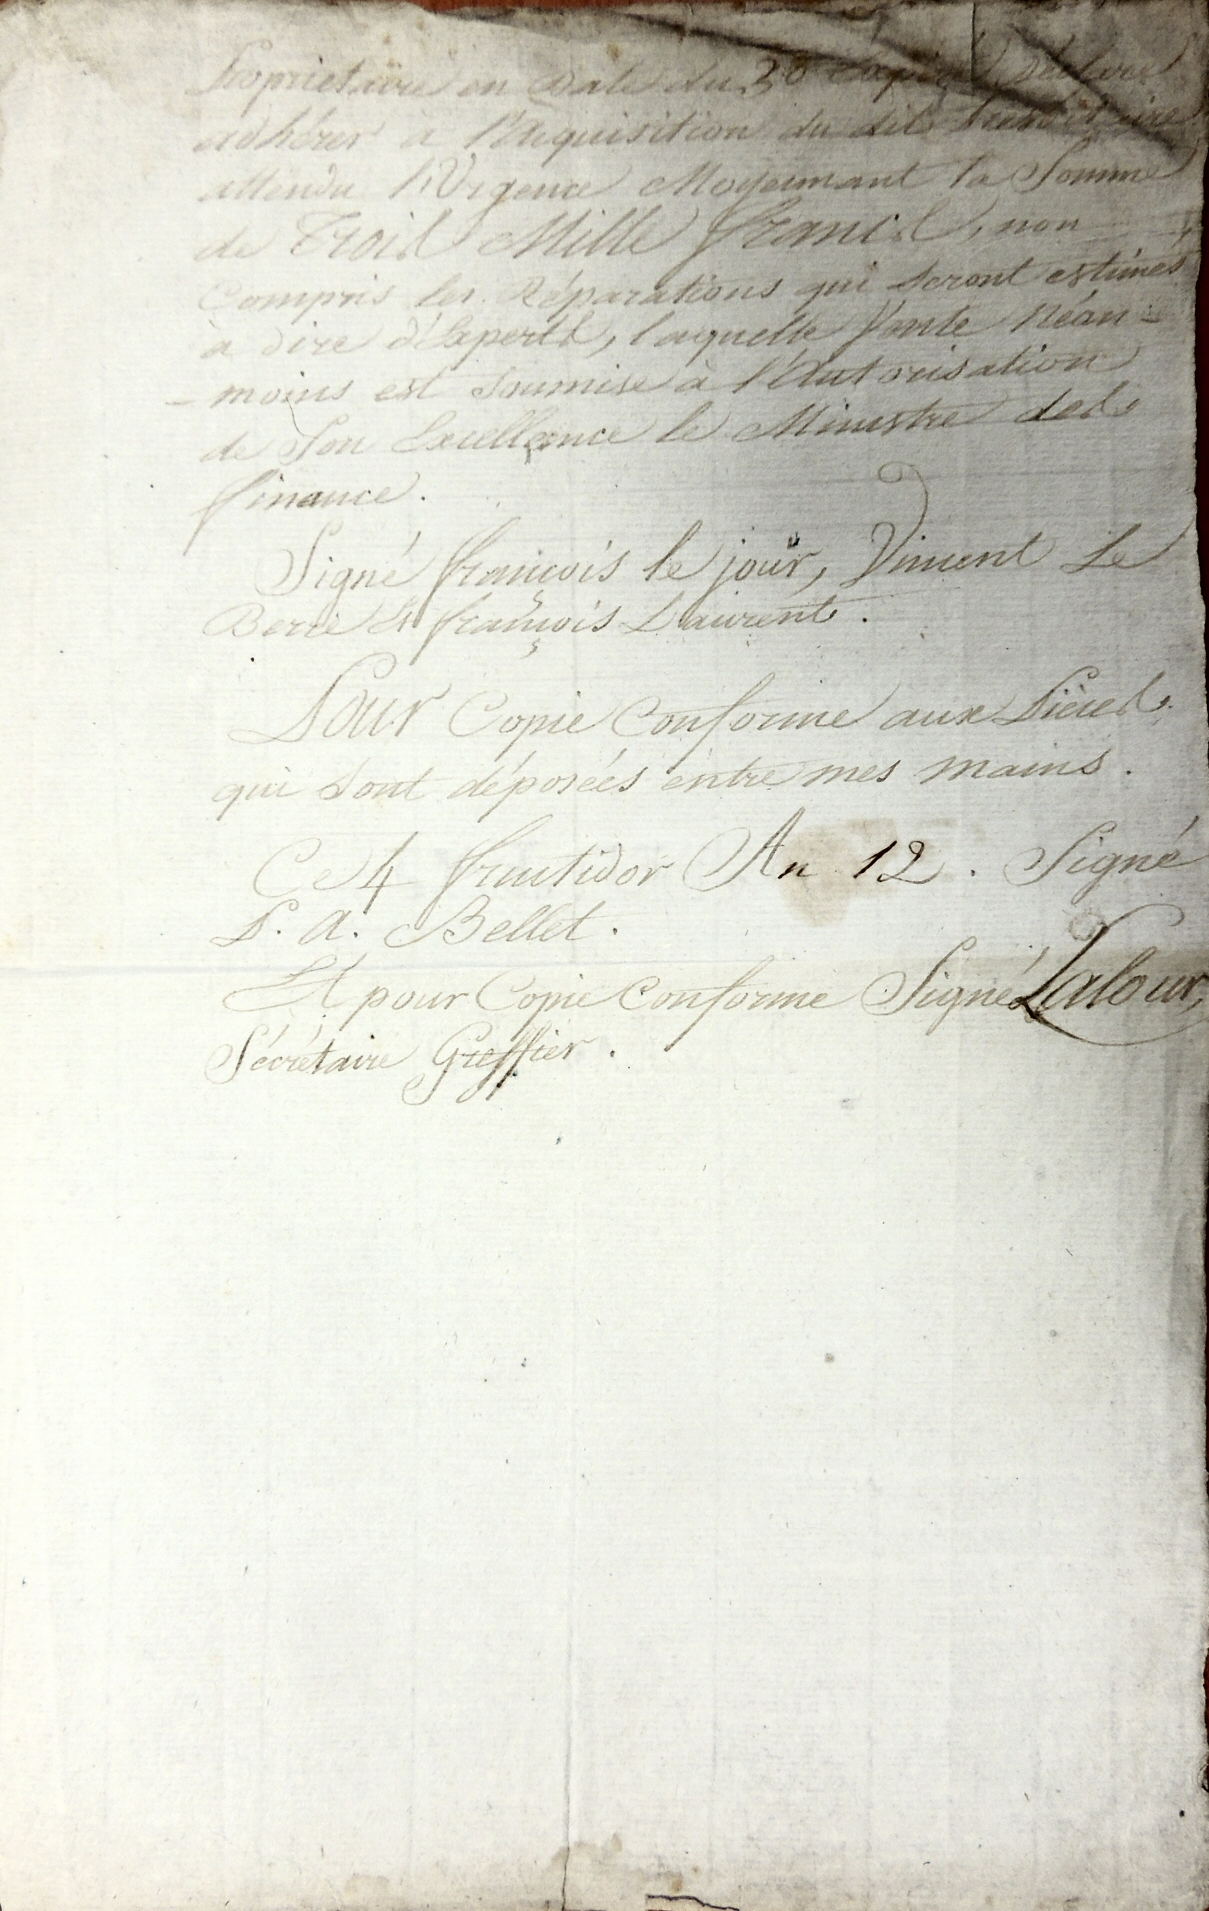 Proprietaire en Date du 30 Déclare
adhérer à l'acquisition du dit
attendu l'Urgence Moyennant la Somme
de Trois Mille francs, non
Compris les Réparations qui seront estimés
à dire d'Experts, laquelle Vente Néan-
-moins est soumise à l'Autorisation
de Son Excellence le Ministre des
finance.
Signé françois le jour, Vincent Le
Berre Et françois Laurent.
Pour Copie Conforme aux Piéces
qui sont déposées entre mes mains.
Ce 4 fructidor An 12. Signé
P. A. Bellet.
Et pour Copie Conforme Signé Lalour,
Sécrétaire Greffier.